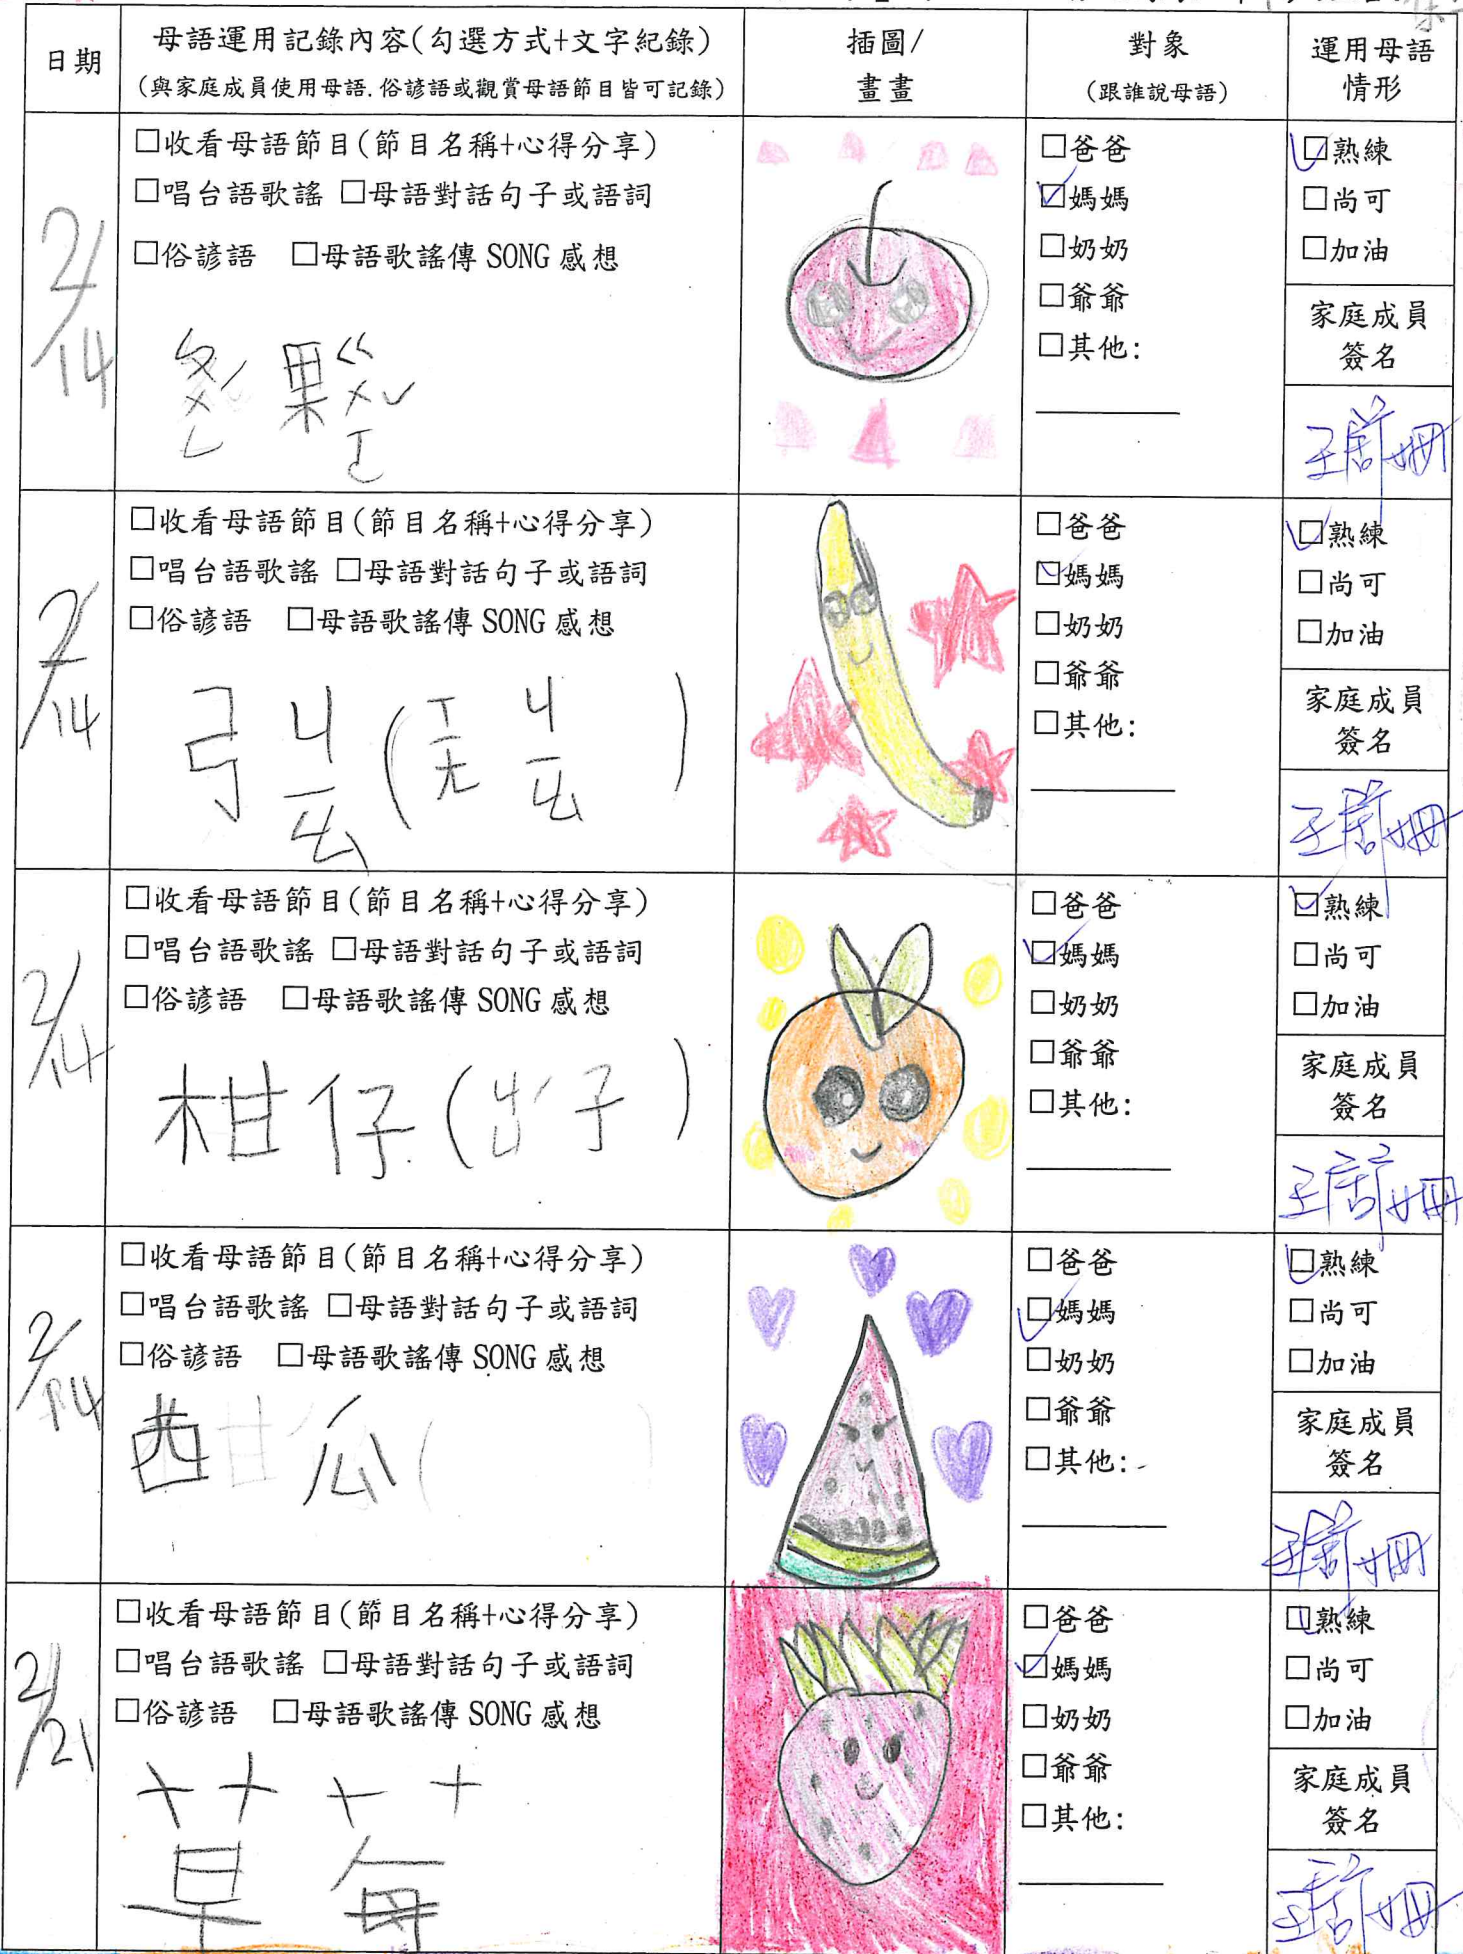 日期
母語運用記錄內容(勾選方式+文字紀錄)
(與家庭成員使用母語.俗諺語或觀賞母語節目皆可記錄)
插圖/
畫畫
對象
(跟誰說母語)
運用母語
情形
2/14
□收看母語節目(節目名稱+心得分享)
□唱台語歌謠 □母語對話句子或語詞
□俗諺語 □母語歌謠傳 SONG 感想
果
□爸爸
□媽媽
□奶奶
□爺爺
□其他:
□熟練
□尚可
□加油
家庭成員
簽名
2/14
□收看母語節目(節目名稱+心得分享)
□唱台語歌謠 □母語對話句子或語詞
□俗諺語 □母語歌謠傳 SONG 感想
弓ㄐㄧㄠ(
□爸爸
□媽媽
□奶奶
□爺爺
□其他:
□熟練
□尚可
□加油
家庭成員
簽名
2/14
□收看母語節目(節目名稱+心得分享)
□唱台語歌謠 □母語對話句子或語詞
□俗諺語 □母語歌謠傳 SONG 感想
柑仔(子)
□爸爸
□媽媽
□奶奶
□爺爺
□其他:
□熟練
□尚可
□加油
家庭成員
簽名
2/14
□收看母語節目(節目名稱+心得分享)
□唱台語歌謠 □母語對話句子或語詞
□俗諺語 □母語歌謠傳 SONG 感想
西瓜
□爸爸
□媽媽
□奶奶
□爺爺
□其他:
□熟練
□尚可
□加油
家庭成員
簽名
2/21
□收看母語節目(節目名稱+心得分享)
□唱台語歌謠 □母語對話句子或語詞
□俗諺語 □母語歌謠傳 SONG 感想
草莓
□爸爸
□媽媽
□奶奶
□爺爺
□其他:
□熟練
□尚可
□加油
家庭成員
簽名